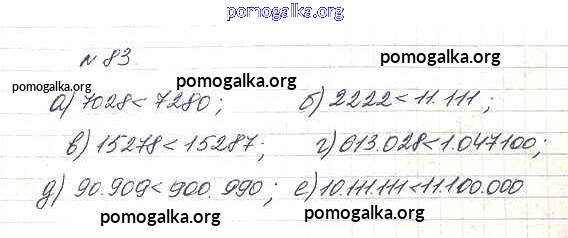 pomogalka.org
№ 83
pomogalka.org
pomogalka.org
pomogalka.org
а) 7028 < 7280; б) 2222 < 11.111;
pomogalka.org
в) 15278 < 15287; г) 613.028 < 1.047100;
д) 90.909 < 900.990; е) 10.111.111 < 11.100.000
pomogalka.org
pomogalka.org